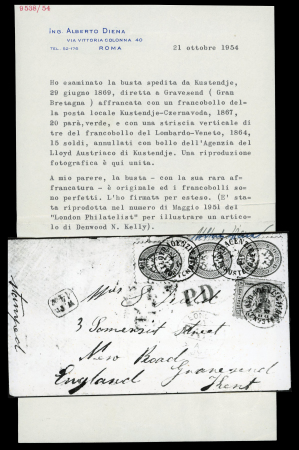 9538/54
ING. ALBERTO DIENA
VIA VITTORIA COLONNA 40
TEL. 52-176 ROMA
21 ottobre 1954
Ho esaminato la busta spedita da Kustendje,
29 giugno 1869, diretta a Gravesend ( Gran
Bretagna ) affrancata con un francobollo del-
la posta locale Kustendje-Czernavoda, 1867,
20 parà, verde, e con una striscia verticale di
tre del francobollo del Lombardo-Veneto, 1864,
15 soldi, annullati con bollo dell'Agenzia del
Lloyd Austriaco di Kustendje. Una riproduzione
fotografica è qui unita.
A mio parere, la busta - con la sua rara af-
francatura - è originale ed i francobolli so-
no perfetti. L'ho firmata per esteso. (E' sta-
ta riprodotta nel numero di Maggio 1951 del
"London Philatelist" per illustrare un artico-
lo di Denwood N. Kelly).
P.D.
Miss
3 Somerset Street
New Road
Gravesend
England Kent